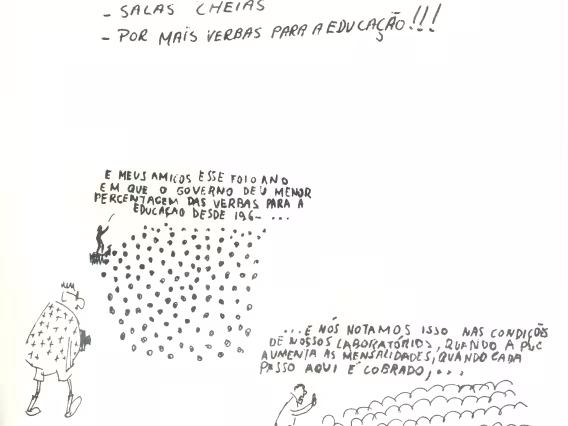 - SALAS CHEIAS
- POR MAIS VERBAS PARA A EDUCAÇÃO!!!
E MEUS AMIGOS ESSE FOI O ANO
EM QUE O GOVERNO DEU MENOR
PERCENTAGEM DAS VERBAS PARA A
EDUCAÇÃO DESDE 196- ...
...E NÓS NOTAMOS ISSO NAS CONDIÇÕES
DE NOSSOS LABORATÓRIOS, QUANDO A PUC
AUMENTA AS MENSALIDADES, QUANDO CADA
PASSO AQUI É COBRADO, ...